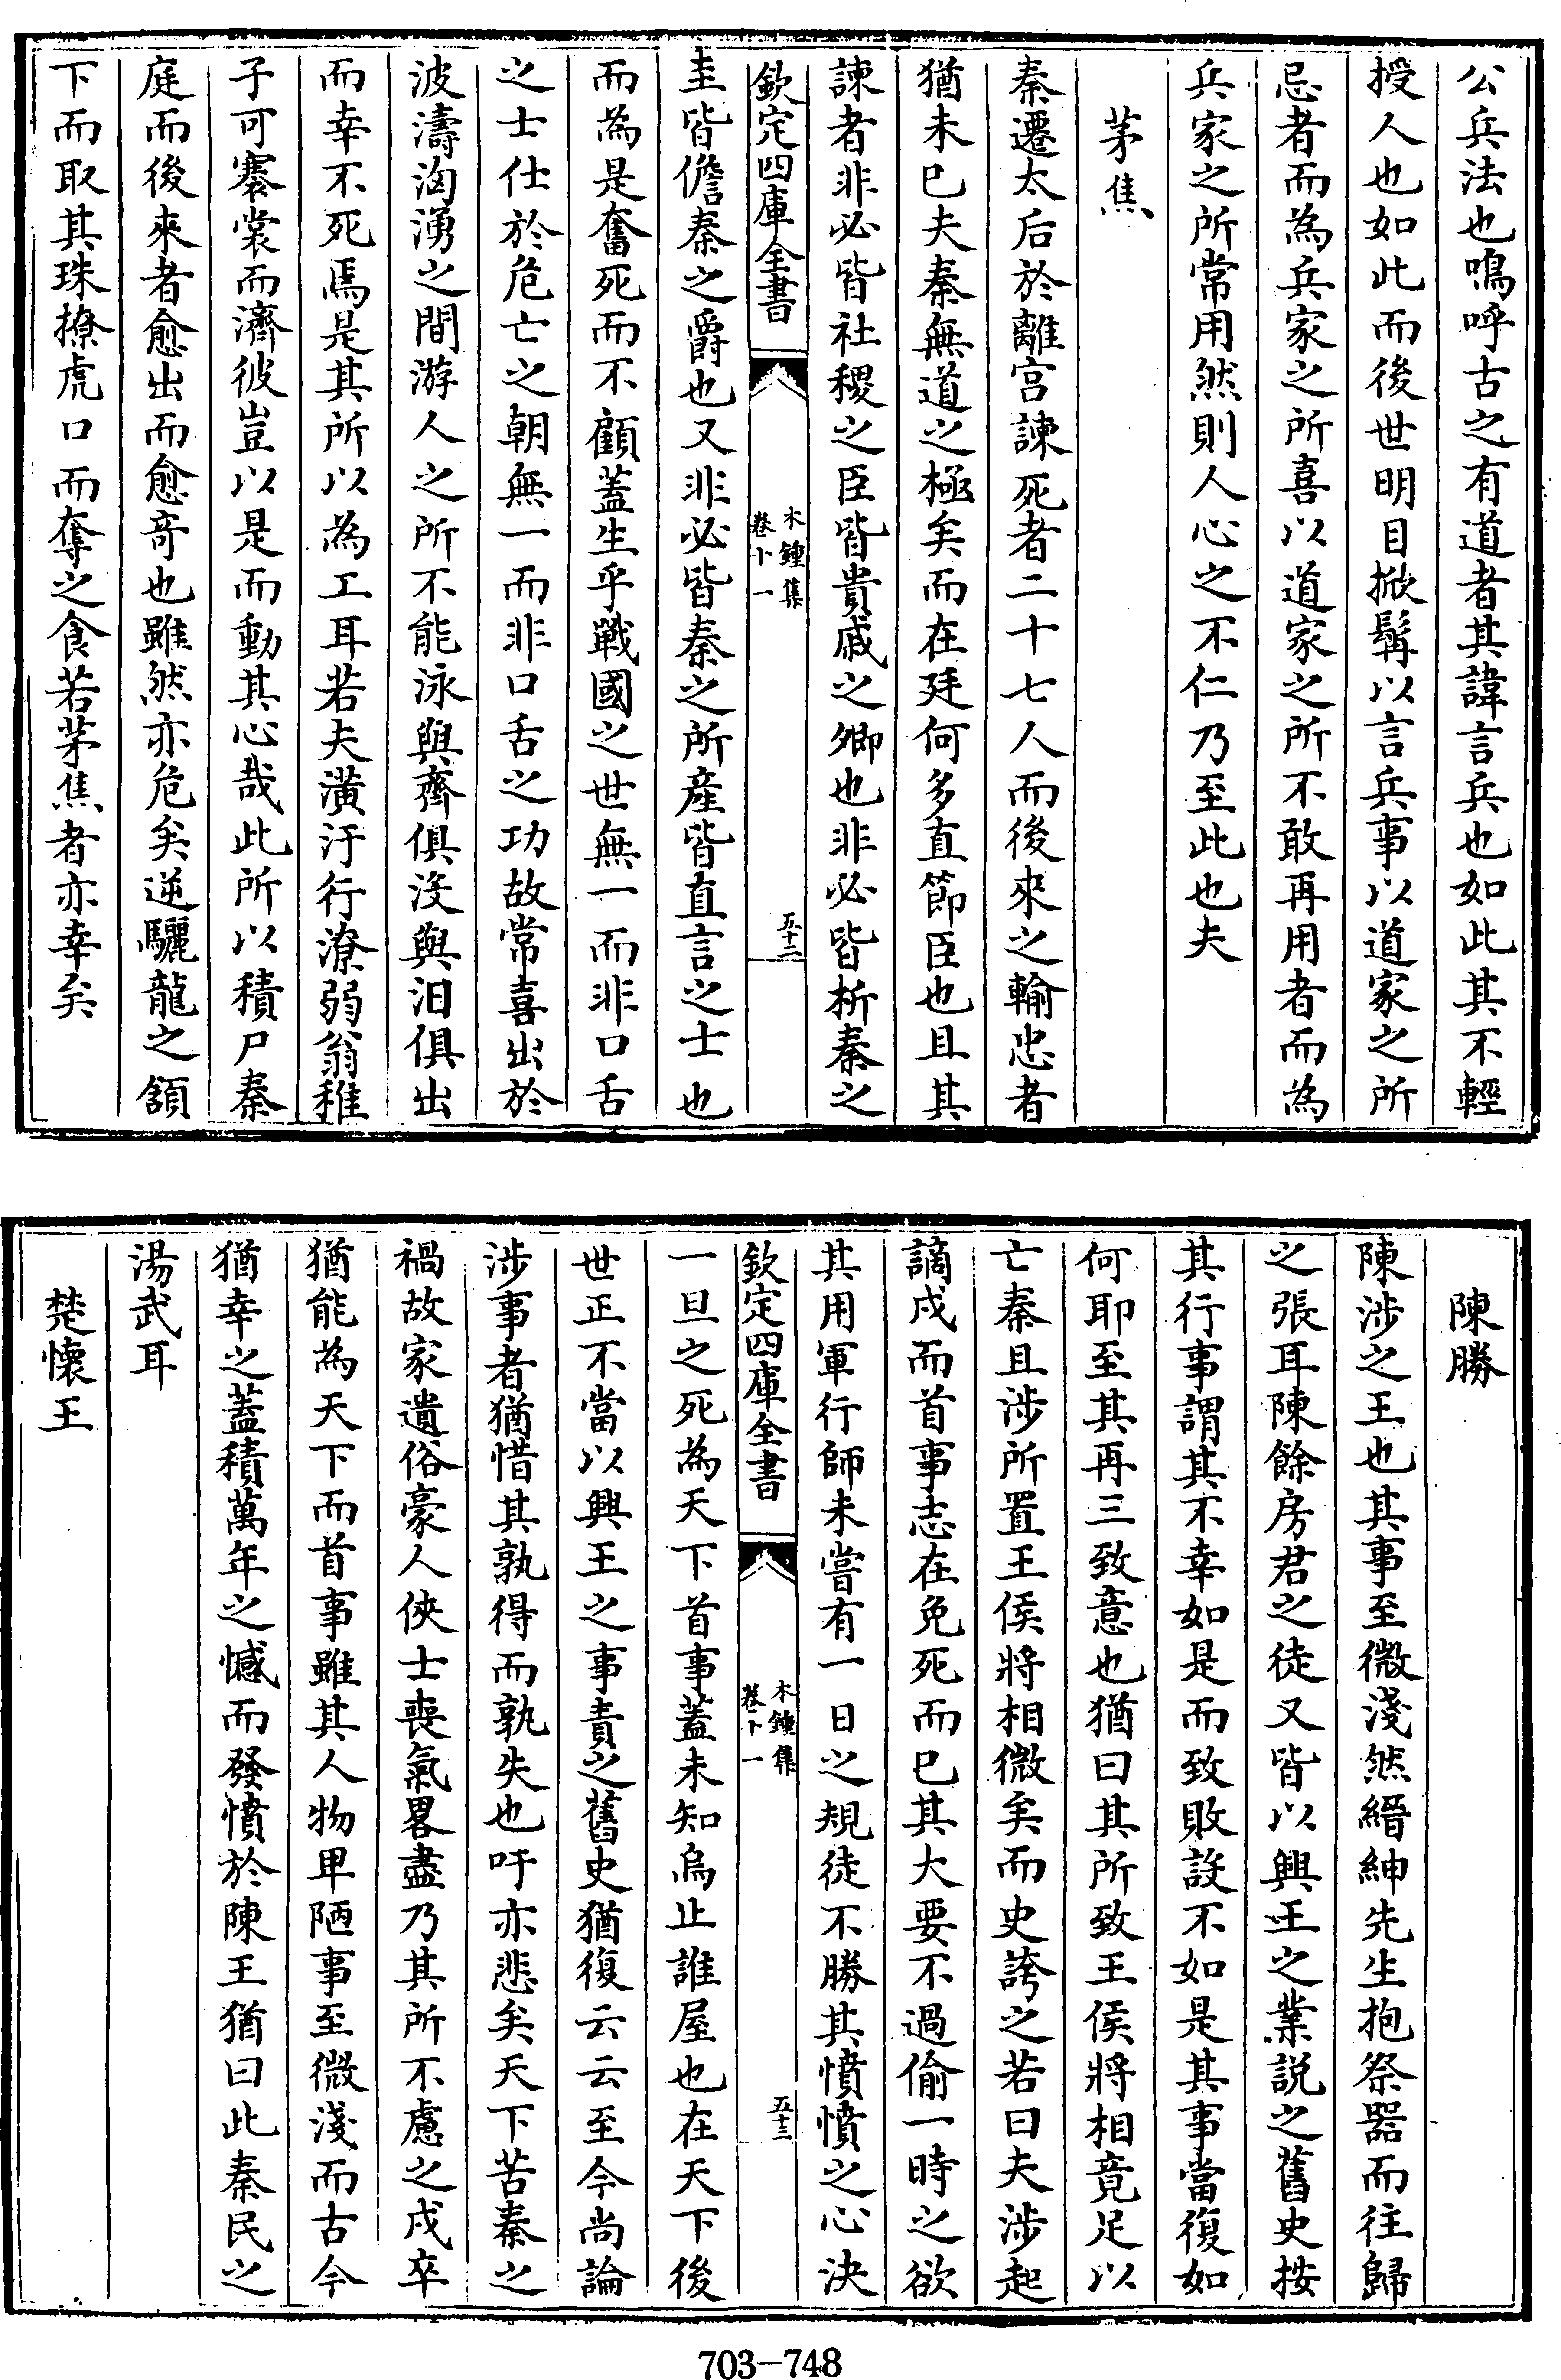 公兵法也鳴呼古之有道者其諱言兵也如此其不輕
授人也如此而後世明目掀髯以言兵事以道家之所
忌者而為兵家之所喜以道家之所不敢再用者而為
兵家之所常用然則人心之不仁乃至此也夫
茅焦
秦遷太后於離宫諫死者二十七人而後來之輸忠者
猶未已夫秦無道之極矣而在廷何多直節臣也且其
諫者非必皆社稷之臣皆貴戚之卿也非必皆析秦之
欽定四庫全書
木鍾集
卷十一
五十二
圭皆儋秦之爵也又非必皆秦之所產皆直言之士也
而為是奮死而不顧蓋生乎戰國之世無一而非口舌
之士仕於危亡之朝無一而非口舌之功故常喜出於
波濤洶湧之間游人之所不能泳與齊俱沒與汩俱出
而幸不死焉是其所以為工耳若夫潢汙行潦弱翁稚
子可褰裳而濟彼豈以是而動其心哉此所以積尸秦
庭而後來者愈出而愈奇也雖然亦危矣逆驪龍之頷
下而取其珠撩虎口而奪之食若茅焦者亦幸矣
陳勝
陳涉之王也其事至微淺然縉紳先生抱祭器而往歸
之張耳陳餘房君之徒又皆以興王之業説之舊史按
其行事謂其不幸如是而致敗設不如是其事當復如
何耶至其再三致意也猶曰其所致王侯將相竟足以
亡秦且涉所置王侯將相微矣而史誇之若曰夫涉起
謫戍而首事志在免死而已其大要不過偷一時之欲
其用軍行師未嘗有一日之規徒不勝其憤憤之心決
欽定四庫全書
木鍾集
卷十一
五十三
一旦之死為天下首事蓋未知烏止誰屋也在天下後
世正不當以興王之事責之舊史猶復云云至今尚論
涉事者猶惜其孰得而孰失也吁亦悲矣天下苦秦之
禍故家遺俗豪人俠士喪氣畧盡乃其所不慮之戍卒
猶能為天下而首事雖其人物卑陋事至微淺而古今
猶幸之蓋積萬年之憾而發憤於陳王猶曰此秦民之
湯武耳
楚懷王
703-748